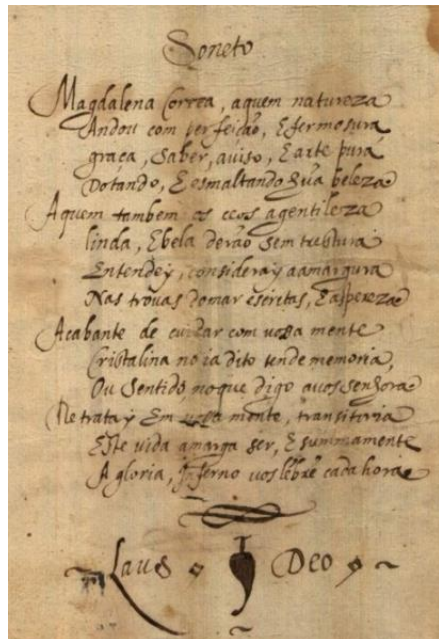 Soneto
Magdalena Correa, aquem natureza
Andou com perfeição, E fermosura
graça, Saber, aviso, E arte pura
Dotando, E esmaltando sua beleza
Aquem tambem os ceos agentileza
linda, E bela derão sem
Entendey, consideray aamargura
Nas trovas domar escritas, E aspereza
Acabante de cuidar com vossa mente
Cristalina no ia dito tende memoria,
Ou Sentido, no que digo avos senhora
Retratay Em vossa mente, transitoria
Este vida amarga ser, E summamente
A gloria, Inferno vos lebre cada hora
Laus Deo